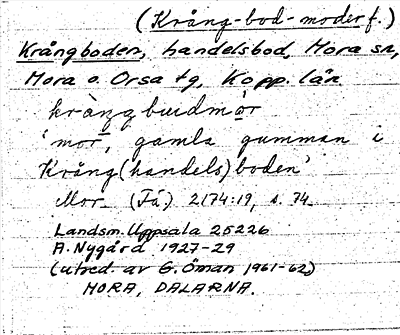 (Krång-bod-moder f.)
Krångboden, handelsbod, Mora sn,
Mora o. Orsa tg, Kopp. län
krångbudmor
'mor, gamla gumman i
Krång(handels)boden'
Mor (Få.) 2174:19, s. 74.
Landsm. Uppsala 25226
A. Nygård 1927-29
(utred. av G. Öman 1961-62)
MORA, DALARNA.